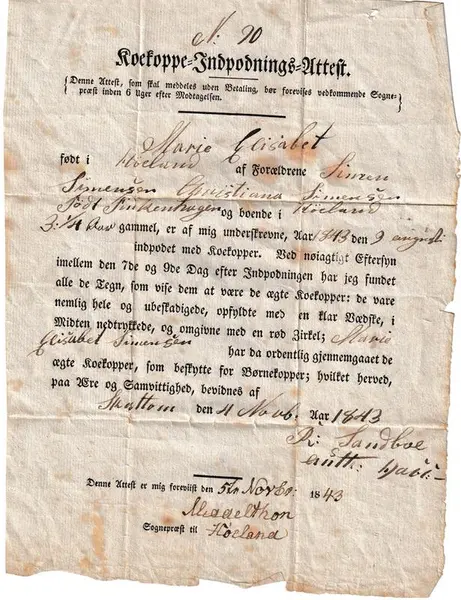 N. 90
Koekoppe-Indpodnings-Attest.
(Denne Attest, som skal meddeles uden Betaling, bør forevises vedkommende Sogne-
præst inden 6 Uger efter Modtagelsen.)
Marie Elisabet
født i Høeland af Forældrene Simen
Simensen Christiana Simensen
født Finkenhagen og boende i Höeland
3 1/4 Aar gammel, er af mig underskrevne, Aar 1843 den 9 august
indpodet med Koekopper. Ved nøiagtigt Eftersyn
imellem den 7de og 9de Dag efter Indpodningen har jeg fundet
alle de Tegn, som vise dem at være de ægte Koekopper: de vare
nemlig hele og ubeskadigede, opfyldte med en klar Vædske, i
Midten nedtrykkede, og omgivne med en rød Zirkel; Marie
Elisabet Simensen har da ordentlig gjennemgaaet de
ægte Koekopper, som beskytte for Børnekopper; hvilket herved,
paa Ære og Samvittighed, bevidnes af
den 4 Novb. Aar 1843
Sandboe
auth: Vacc:
Denne Attest er mig forevist den 5te Novbr. 1843
Sognepræst til Høeland